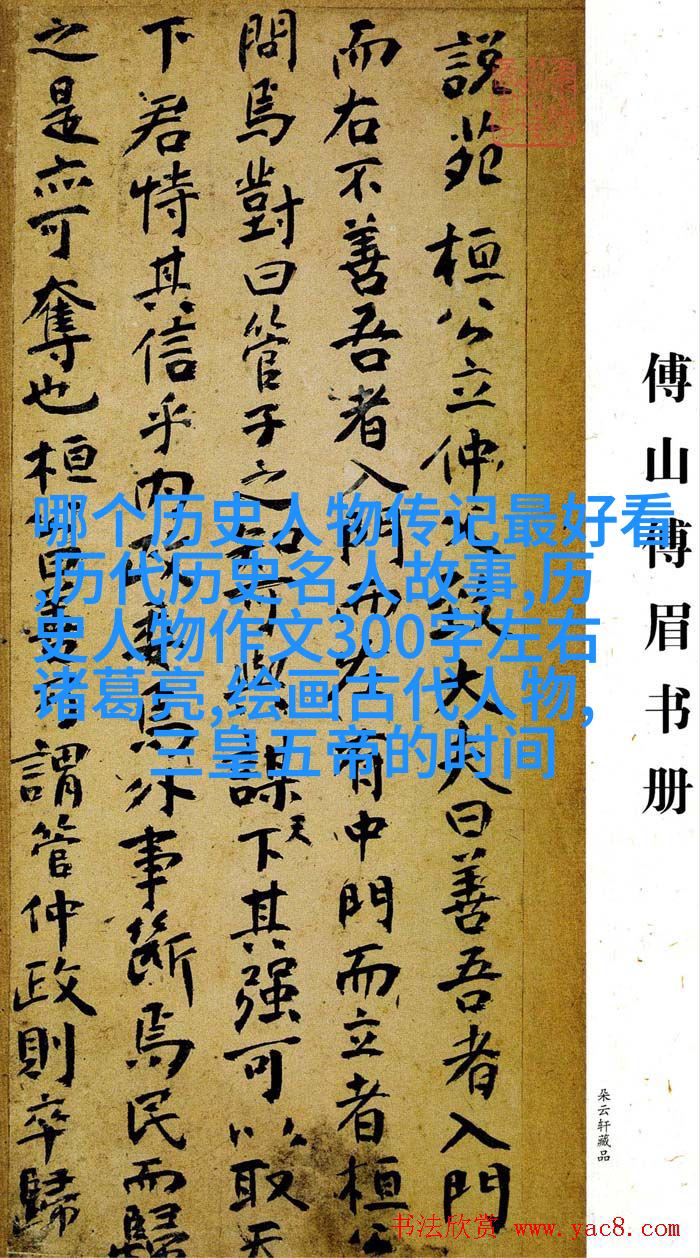 傅山傅眉书册
朵云轩藏品
說苑 桓公立仲致大夫曰善吾者入門
而右不善吾者入門而左有中門而立者桓公
問焉對曰管子之可與謀天下其强可以取天
下君恃其信乎内政委焉外事斷焉民而歸
之是亦可奪也桓曰善謂管仲政則卒歸
哪个历史人物传记最好看
,历代历史名人故事,历
史人物作文300字左右
诸葛亮,绘画古代人物,
三皇五帝的时间
书法欣赏 www.yac8.com